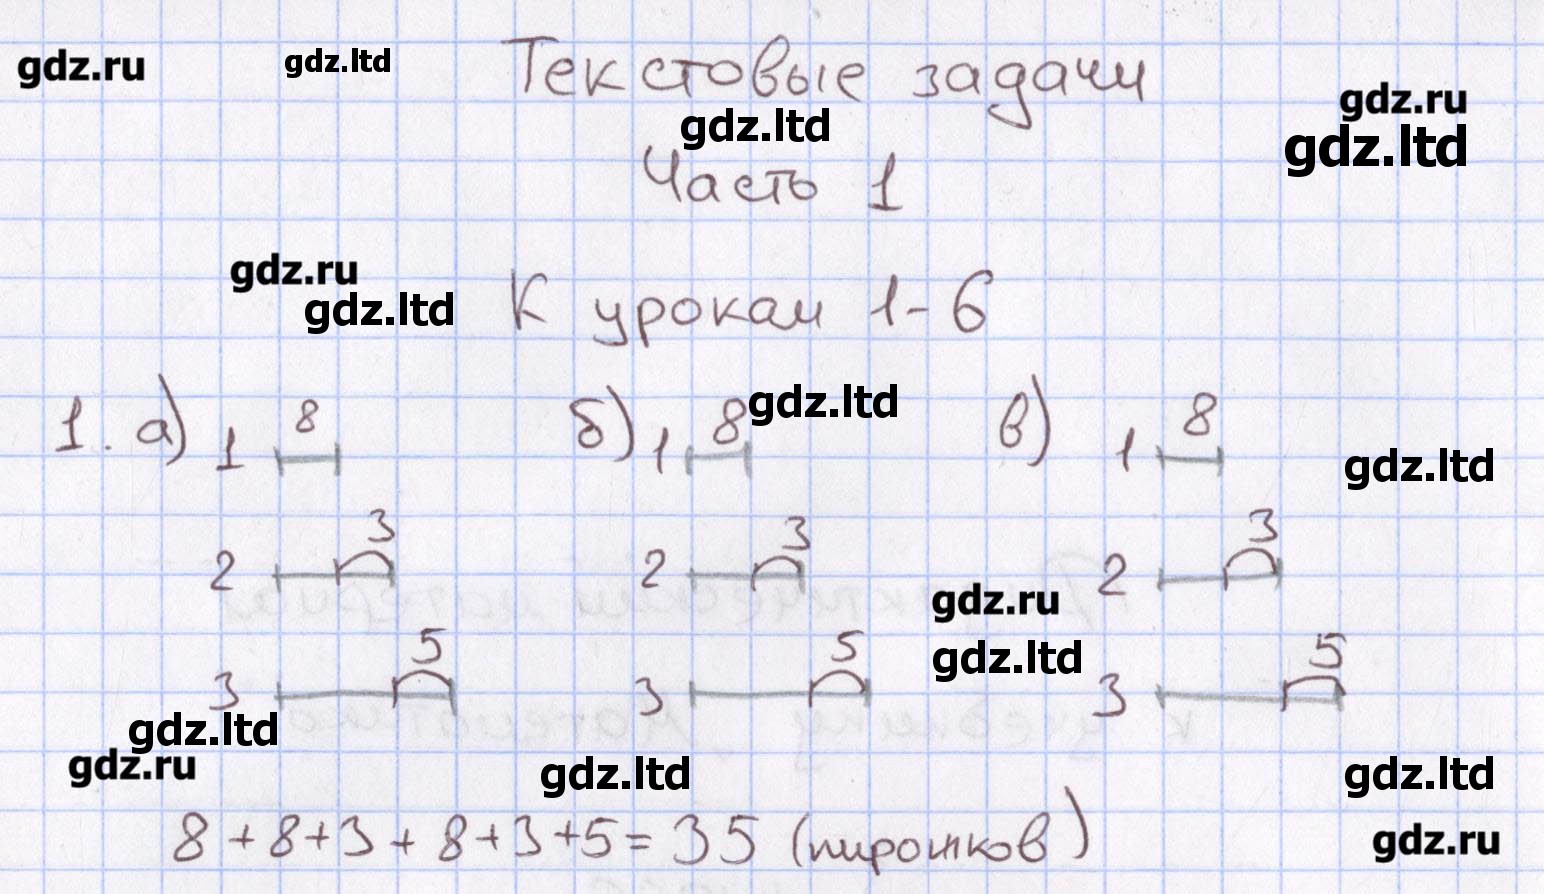 gdz.ru gdz.ltd Текстовые задачи
gdz.ru
gdz.ltd gdz.ltd
Часть 1
gdz.ru
gdz.ltd К урокам 1-6
1. а) 1 8 б) 1 8 gdz.ltd в) 1 8
gdz.ltd
2 3 2 3 2 3
gdz.ru
gdz.ltd
3 5 3 5 3 5
gdz.ltd
gdz.ru gdz.ltd gdz.ltd
8+8+3+8+3+5=35 (пирожков)
gdz.ru